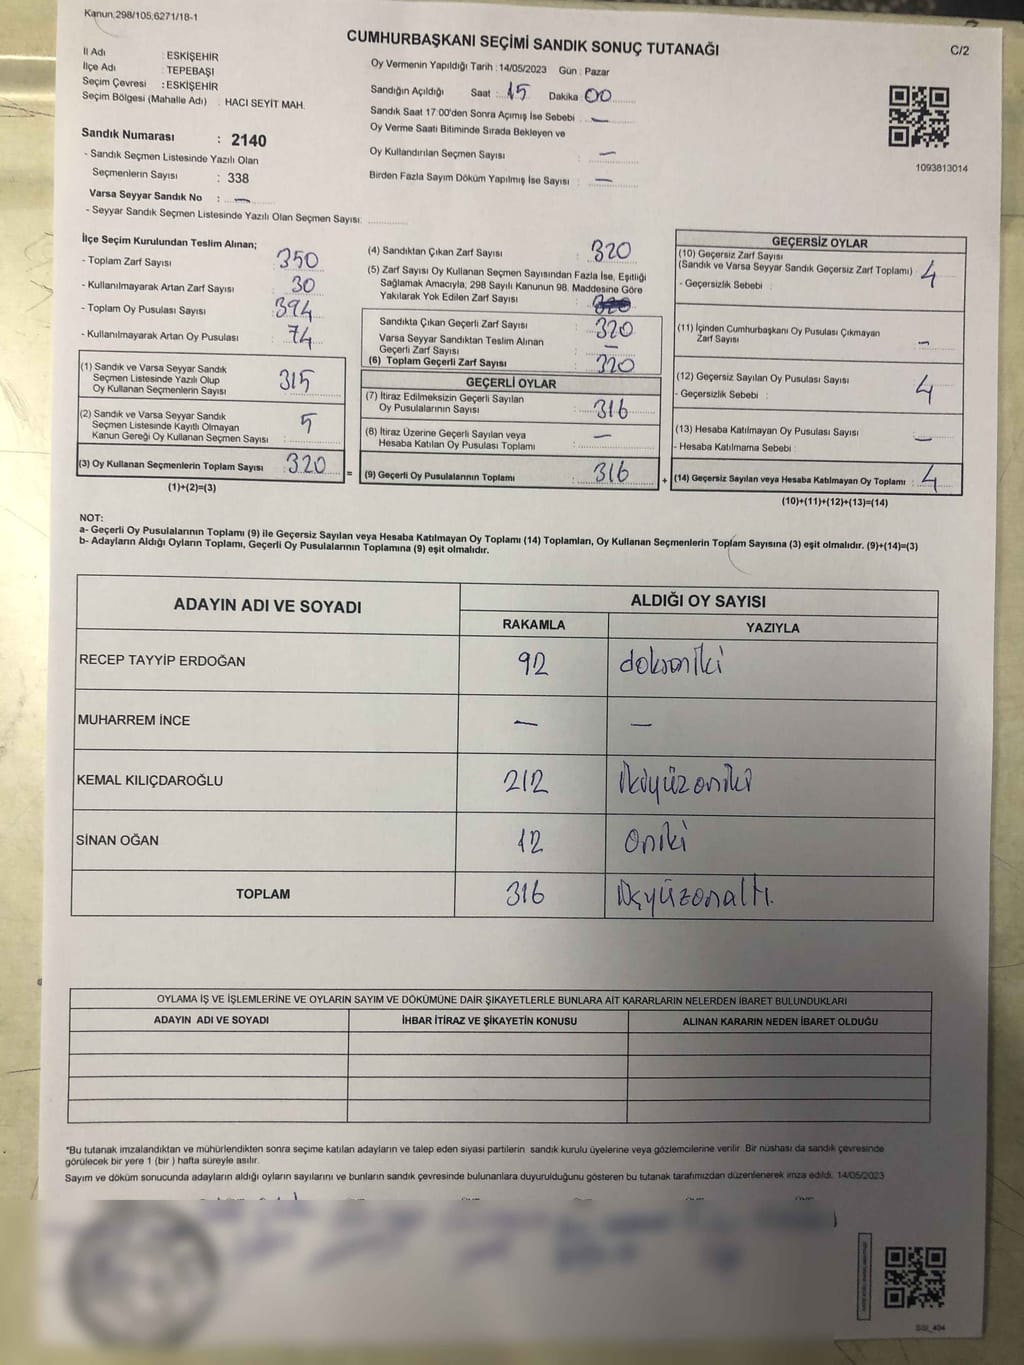 Kanun,298/105,6271/18-1
CUMHURBAŞKANI SEÇİMİ SANDIK SONUÇ TUTANAĞI
C/2
İl Adı : ESKİŞEHİR
İlçe Adı : TEPEBAŞI
Seçim Çevresi : ESKİŞEHİR
Seçim Bölgesi (Mahalle Adı) : HACI SEYİT MAH.
Sandık Numarası : 2140
- Sandık Seçmen Listesinde Yazılı Olan
Seçmenlerin Sayısı : 338
Varsa Seyyar Sandık No : —
- Seyyar Sandık Seçmen Listesinde Yazılı Olan Seçmen Sayısı:
Oy Vermenin Yapıldığı Tarih : 14/05/2023 Gün : Pazar
Sandığın Açıldığı Saat : 15 Dakika 00
Sandık Saat 17:00'den Sonra Açımış İse Sebebi : —
Oy Verme Saati Bitiminde Sırada Bekleyen ve
Oy Kullandırılan Seçmen Sayısı : —
Birden Fazla Sayım Döküm Yapılmış İse Sayısı : —
1093813014
İlçe Seçim Kurulundan Teslim Alınan;
- Toplam Zarf Sayısı : 350
- Kullanılmayarak Artan Zarf Sayısı : 30
- Toplam Oy Pusulası Sayısı : 394
- Kullanılmayarak Artan Oy Pusulası : 74
(1) Sandık ve Varsa Seyyar Sandık
Seçmen Listesinde Yazılı Olup
Oy Kullanan Seçmenlerin Sayısı : 315
(2) Sandık ve Varsa Seyyar Sandık
Seçmen Listesinde Kayıtlı Olmayan
Kanun Gereği Oy Kullanan Seçmen Sayısı : 5
(3) Oy Kullanan Seçmenlerin Toplam Sayısı : 320
(1)+(2)=(3)
(4) Sandıktan Çıkan Zarf Sayısı : 320
(5) Zarf Sayısı Oy Kullanan Seçmen Sayısından Fazla İse, Eşitliği
Sağlamak Amacıyla, 298 Sayılı Kanunun 98. Maddesine Göre
Yakılarak Yok Edilen Zarf Sayısı :
Sandıkta Çıkan Geçerli Zarf Sayısı : 320
Varsa Seyyar Sandıktan Teslim Alınan
Geçerli Zarf Sayısı : —
(6) Toplam Geçerli Zarf Sayısı : 320
GEÇERLİ OYLAR
(7) İtiraz Edilmeksizin Geçerli Sayılan
Oy Pusulalarının Sayısı : 316
(8) İtiraz Üzerine Geçerli Sayılan veya
Hesaba Katılan Oy Pusulası Toplamı : —
= (9) Geçerli Oy Pusulalarının Toplamı : 316
GEÇERSİZ OYLAR
(10) Geçersiz Zarf Sayısı
(Sandık ve Varsa Seyyar Sandık Geçersiz Zarf Toplamı) : 4
- Geçersizlik Sebebi :
(11) İçinden Cumhurbaşkanı Oy Pusulası Çıkmayan
Zarf Sayısı : —
(12) Geçersiz Sayılan Oy Pusulası Sayısı : 4
- Geçersizlik Sebebi :
(13) Hesaba Katılmayan Oy Pusulası Sayısı : —
- Hesaba Katılmama Sebebi :
+ (14) Geçersiz Sayılan veya Hesaba Katılmayan Oy Toplamı : 4
(10)+(11)+(12)+(13)=(14)
NOT:
a- Geçerli Oy Pusulalarının Toplamı (9) ile Geçersiz Sayılan veya Hesaba Katılmayan Oy Toplamı (14) Toplamları, Oy Kullanan Seçmenlerin Toplam Sayısına (3) eşit olmalıdır. (9)+(14)=(3)
b- Adayların Aldığı Oyların Toplamı, Geçerli Oy Pusulalarının Toplamına (9) eşit olmalıdır.
ADAYIN ADI VE SOYADI
ALDIĞI OY SAYISI
RAKAMLA YAZIYLA
RECEP TAYYİP ERDOĞAN 92 doksaniki
MUHARREM İNCE — —
KEMAL KILIÇDAROĞLU 212 İkiyüzoniki
SİNAN OĞAN 12 oniki
TOPLAM 316 üçyüzonaltı.
OYLAMA İŞ VE İŞLEMLERİNE VE OYLARIN SAYIM VE DÖKÜMÜNE DAİR ŞİKAYETLERLE BUNLARA AİT KARARLARIN NELERDEN İBARET BULUNDUKLARI
ADAYIN ADI VE SOYADI İHBAR İTİRAZ VE ŞİKAYETİN KONUSU ALINAN KARARIN NEDEN İBARET OLDUĞU
*Bu tutanak imzalandıktan ve mühürlendikten sonra seçime katılan adayların ve talep eden siyasi partilerin sandık kurulu üyelerine veya gözlemcilerine verilir. Bir nüshası da sandık çevresinde
görülecek bir yere 1 (bir ) hafta süreyle asılır.
Sayım ve döküm sonucunda adayların aldığı oyların sayılarını ve bunların sandık çevresinde bulunanlara duyurulduğunu gösteren bu tutanak tarafımızdan düzenlenerek imza edildi. 14/05/2023